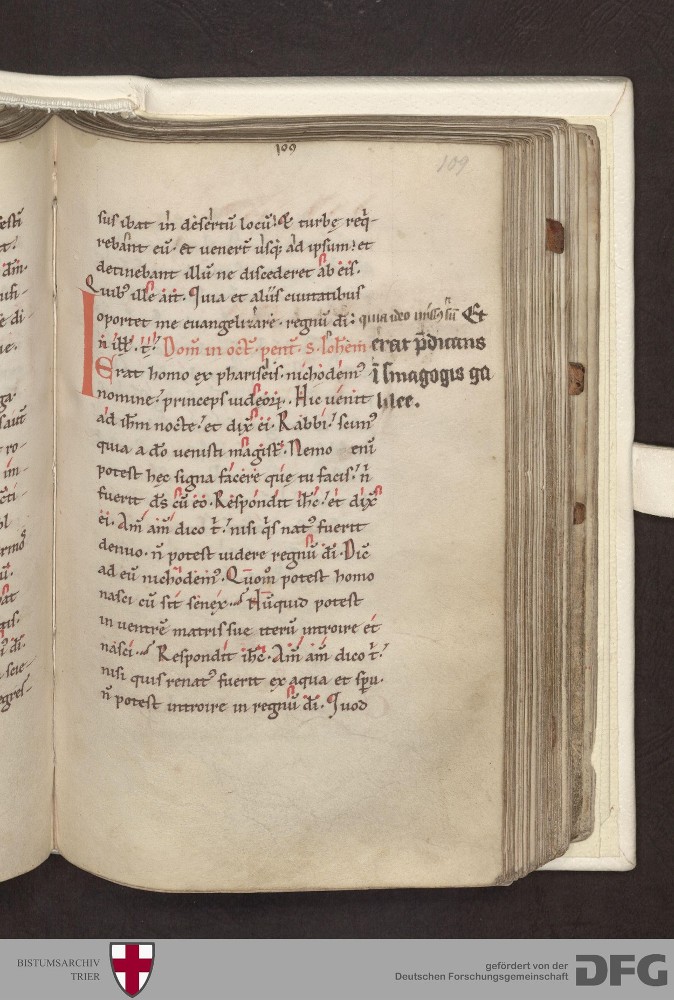 109
109
sus ibat in desertū locū. Et turbę req̄-
rebant eū. et venert̄ usq; ad ipsum. et
detinebant illū ne discederet ab eis.
Quib⁹ ille ait. Quia et aliis ciuitatibus
oportet me euangelizare. regnū dī. quia ideo missus sū Et
Dom̄ in oct̄. pent̄. s. Ioh̄em erat p̄dicans
Erat homo ex phariseis. nichodem⁹ ī sinagogis ga
nomine. princeps iudeoꝝ. Hic uenit lilee.
ad ih̄m nocte. et dix̄ ei. Rabbi. scim⁹
quia a dō uenisti magist̄. Nemo enī
potest hęc signa facere quę tu facis. n̄
fuerit ds̄ cū eo. Respondit ih̄c. et dix̄
ei. Am̄ am̄ dico t̄. nisi q̄s nat⁹ fuerit
denuo. n̄ potest uidere regnū dī. Dic̄
ad eū nichodem⁹. Quom̄ potest homo
nasci cū sit senex. Nūquid potest
in uentrē matris suę iterū introire et
nasci. Respondit ih̄c. Am̄ am̄ dico t̄.
nisi quis renat⁹ fuerit ex aqua et sp̄u.
n̄ potest introire in regnū dī. Quod
BISTUMSARCHIV
TRIER
gefördert von der
Deutschen Forschungsgemeinschaft
DFG